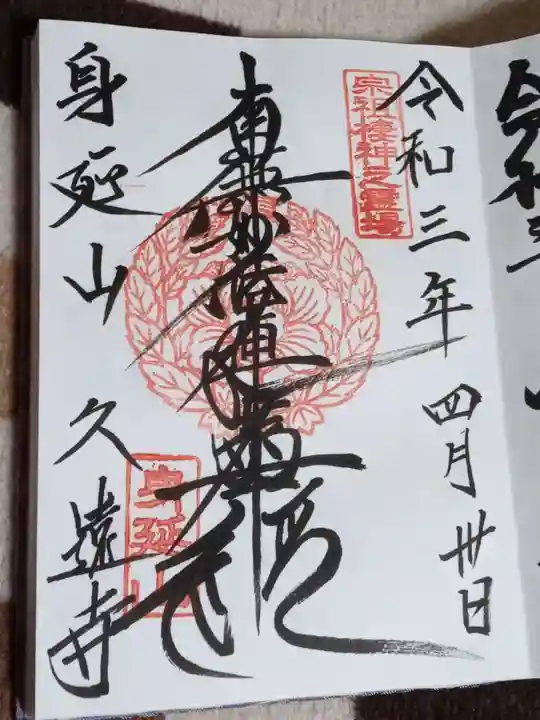 令和三年四月卅日
宗祖棲神之霊場
南無妙法蓮華経
身延山
身延山 久遠寺